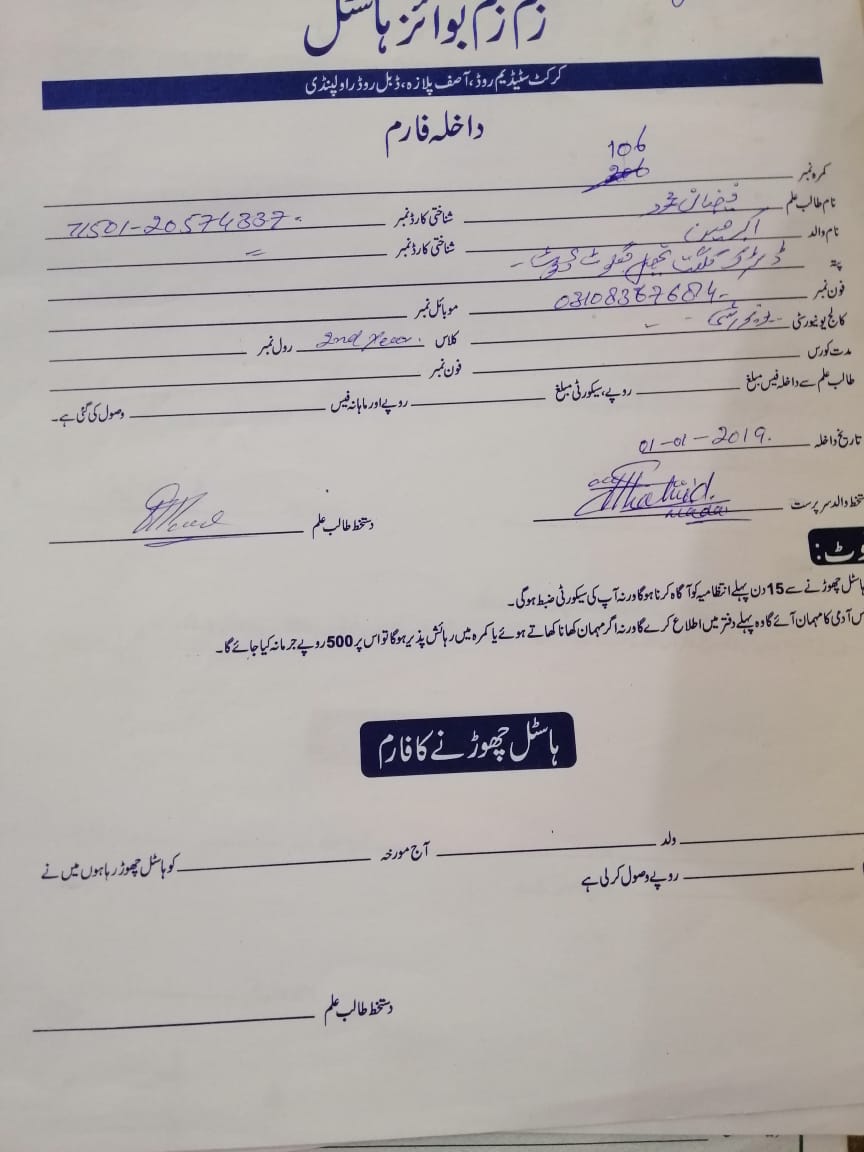 زم زم بوائز ہاسٹل
کرکٹ سٹیڈیم روڈ، آصف پلازہ، ڈبل روڈ راولپنڈی
داخلہ فارم
106
کمرہ نمبر 206
نام طالب علم شناختی کارڈ نمبر 71501-20574337-
نام والد اکبر حسین شناختی کارڈ نمبر =
پتہ گلگت
فون نمبر موبائل نمبر
کالج یونیورسٹی کلاس 2nd year. رول نمبر
مدت کورس فون نمبر
طالب علم سے داخلہ فیس مبلغ روپے، سیکورٹی مبلغ روپے اور ماہانہ فیس وصول کی گئی ہے۔
تاریخ داخلہ 01-01-2019.
تخط والد سرپرست دستخط طالب علم
وٹ:
ہاسٹل چھوڑنے سے 15 دن پہلے انتظامیہ کو آگاہ کرنا ہوگا ورنہ آپ کی سیکورٹی ضبط ہوگی۔
س آدمی کا مہمان آئے گا وہ پہلے دفتر میں اطلاع کرے گا ورنہ اگر مہمان کھانا کھاتے ہوئے یا کمرہ میں رہائش پذیر ہوگا تو اس پر 500 روپے جرمانہ کیا جائے گا۔
ہاسٹل چھوڑنے کا فارم
ولد آج مورخہ کو ہاسٹل چھوڑ رہا ہوں میں نے
روپے وصول کر لی ہے
دستخط طالب علم